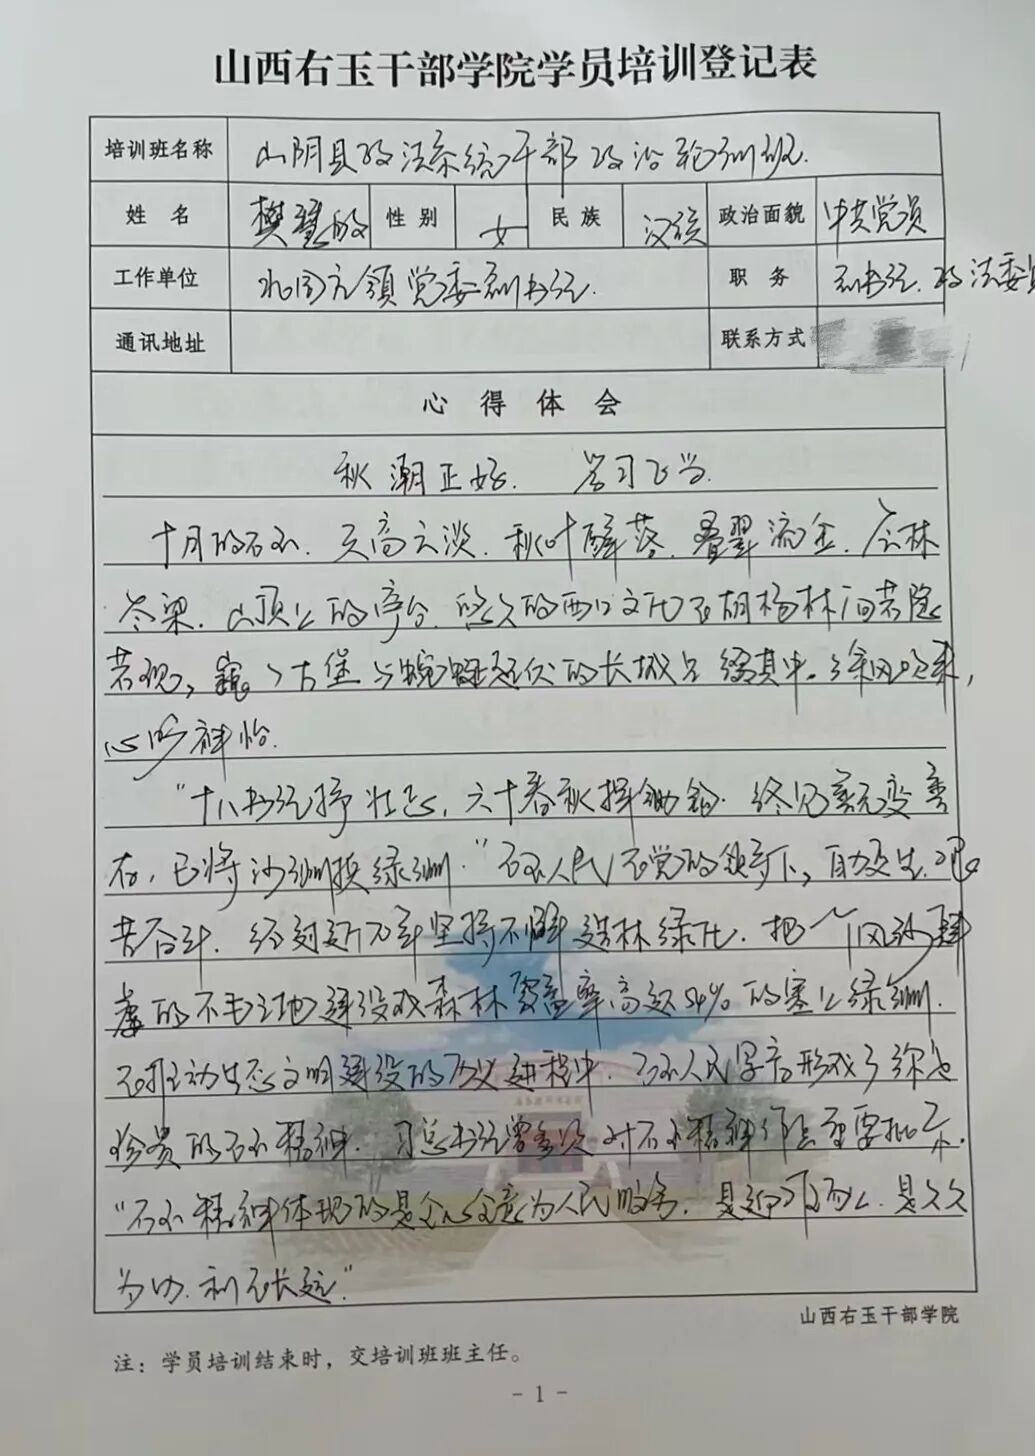 山西右玉干部学院学员培训登记表
培训班名称 山阴县政法系统干部政治轮训班.
姓名 樊 性别 女 民族 汉族 政治面貌 中共党员
工作单位 党委副书记.
职务 副书记.政法委员
通讯地址 联系方式
心得体会
秋潮正好. 学习正当.
十月的右玉.天高云淡.秋叶落.叠翠流金.
苍.山顶上的亭台.悠久的西口文化在胡杨林间若隐
若现,巍巍古堡与蜿蜒起伏的长城点缀其中.徐风吹来,
心旷神怡.
"十八书记抒壮志,六十春秋挥锄锹.终见荒凉变
,已将沙洲换绿洲."右玉人民在党的领导下,自力更生.艰
苦奋斗.经过近70年坚持不懈造林绿化.把一个风沙肆
虐的不毛之地建设成森林覆盖率高达54%的塞上绿洲.
在推动生态文明建设的历史进程中.右玉人民孕育形成了弥足
珍贵的右玉精神.习总书记曾多次对右玉精神作出重要批示.
"右玉精神体现的是全心全意为人民服务,是迎难而上.是久久
为功.利在长远"
山西右玉干部学院
注:学员培训结束时,交培训班班主任。
- 1 -